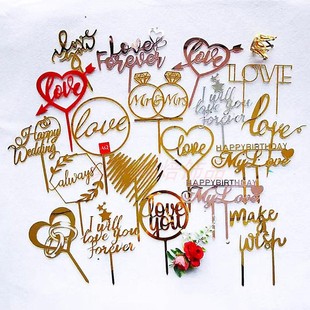 love
Love
Forever
love
LOVE
Mr & Mrs
I will
love you
Forever
Happy
Wedding
love
love
love
HAPPYBIRTHDAY
My Love
always
HAPPYBIRTHDAY
My Love
I will
love you
Forever
love
you
make
wish